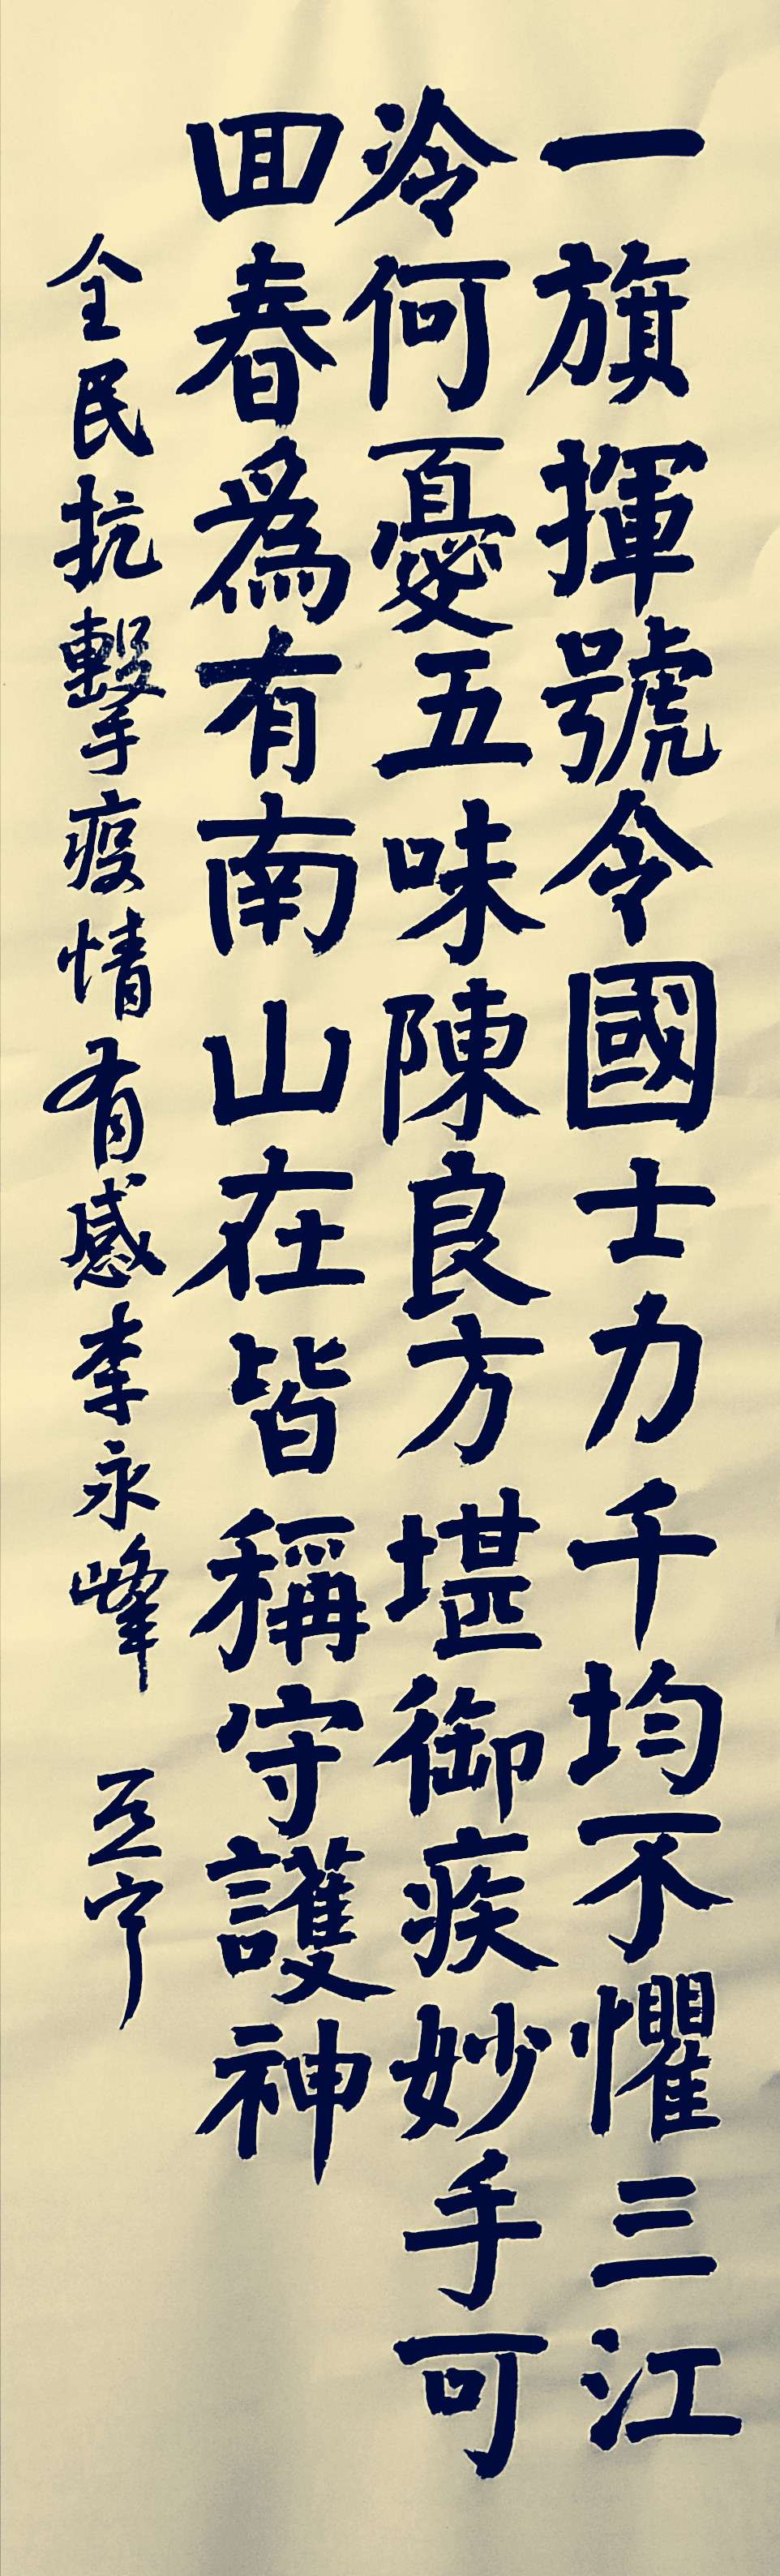 一旗揮號令國士力千均不懼三江
冷何憂五味陳良方堪御疾妙手可
回春為有南山在皆稱守護神
全民抗擊疫情有感李永峰 亙宁